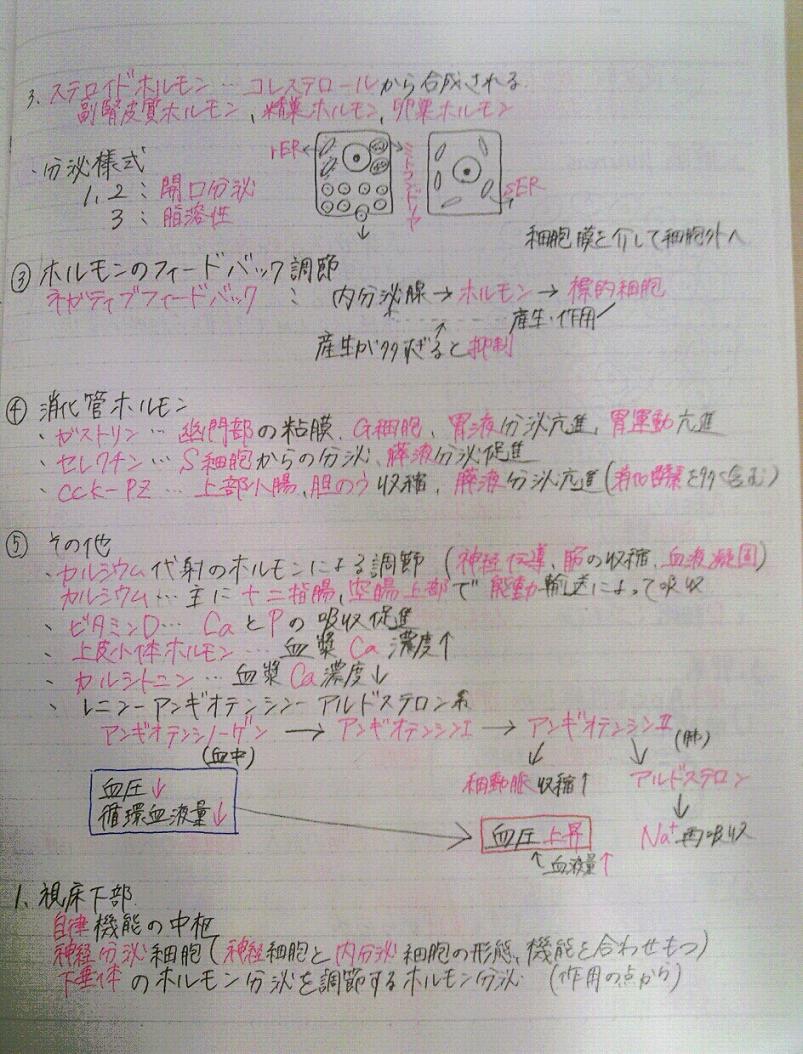 3、ステロイドホルモン … コレステロールから合成される
副腎皮質ホルモン、精巣ホルモン、卵巣ホルモン
・分泌様式
1, 2 : 開口分泌
3 : 脂溶性
rER
ミトコンドリヤ
sER
細胞膜を介して細胞外へ
③ ホルモンのフィードバック調節
ネガティブフィードバック : 内分泌腺 → ホルモン → 標的細胞
産生・作用
産生が多すぎると抑制
④ 消化管ホルモン
・ガストリン … 幽門部の粘膜、G細胞、胃液分泌亢進、胃運動亢進
・セレクチン … S細胞からの分泌、膵液分泌促進
・CCK-PZ … 上部小腸、胆のう収縮、膵液分泌亢進(消化酵素を多く含む)
⑤ その他
・カルシウム代射のホルモンによる調節 (神経伝導、筋の収縮、血液凝固)
カルシウム … 主に十二指腸、空腸上部で能動輸送によって吸収
、ビタミンD … CaとPの吸収促進
、上皮小体ホルモン … 血漿Ca濃度↑
、カルシトニン … 血漿Ca濃度↓
、レニン-アンギオテンシン-アルドステロン系
アンギオテンシノーゲン → アンギオテンシンI → アンギオテンシンII
(血中)
(肺)
細動脈収縮↑ アルドステロン
血圧↓
循環血液量↓
血圧上昇 Na⁺再吸収
↑血液量↑
1、視床下部
自律機能の中枢
神経分泌細胞(神経細胞と内分泌細胞の形態、機能を合わせもつ)
下垂体のホルモン分泌を調節するホルモン分泌 (作用の点から)